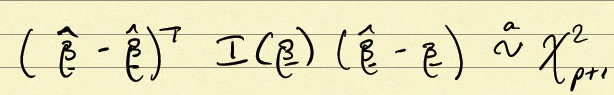 (β̂ - β̂)ᵀ I(β) (β̂ - β) ᵃ∼ χ²ₚ₊₁